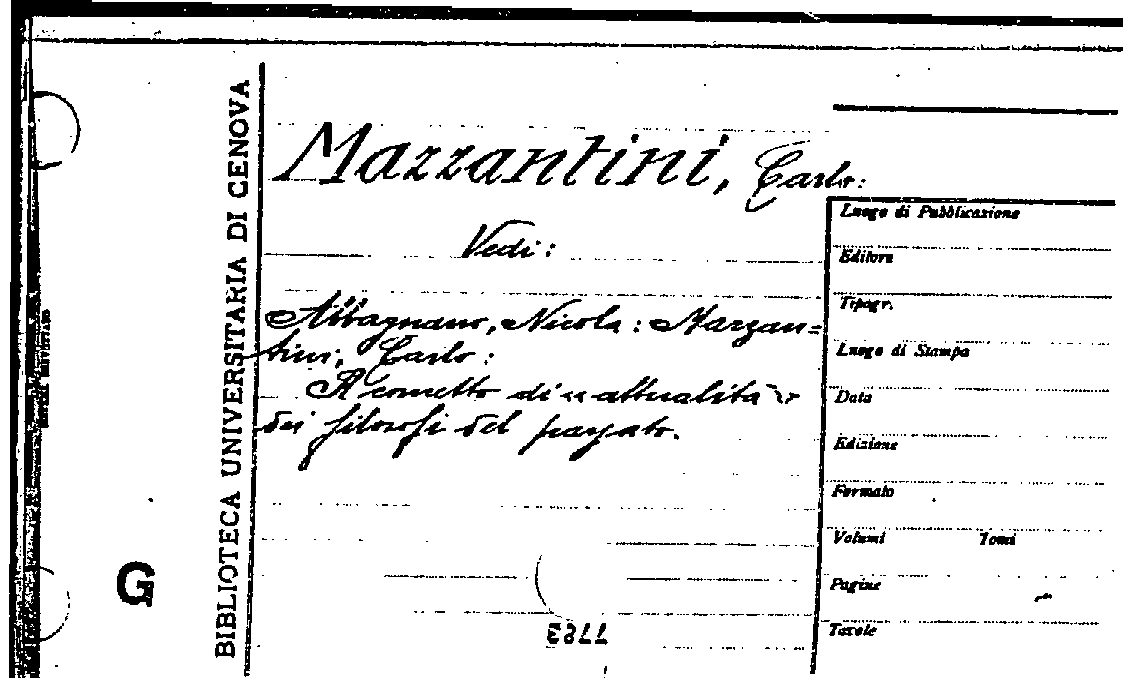 BIBLIOTECA UNIVERSITARIA DI GENOVA
Mazzantini, Carlo:
Vedi:
Abbagnano, Nicola: Mazzan=
tini, Carlo:
Il concetto di "attualità"
dei filosofi del passato.
Luogo di Pubblicazione
Editore
Tipogr.
Luogo di Stampa
Data
Edizione
Formato
Volumi Tomi
Pagine
Tavole
G
7783